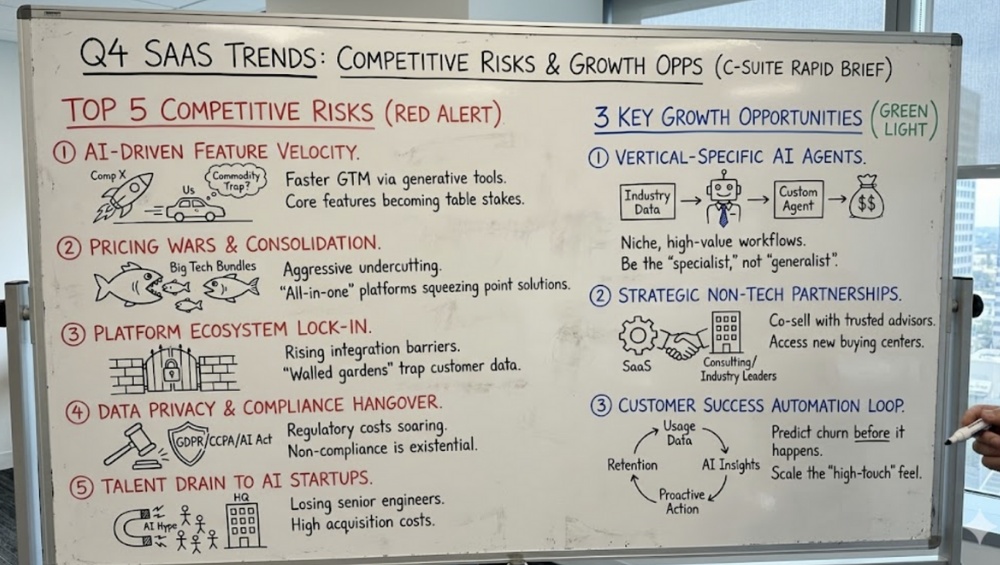 Q4 SAAS TRENDS: COMPETITIVE RISKS & GROWTH OPPS (C-SUITE RAPID BRIEF)
TOP 5 COMPETITIVE RISKS (RED ALERT)
① AI-DRIVEN FEATURE VELOCITY.
Comp X
Us
Commodity
Trap?
Faster GTM via generative tools.
Core features becoming table stakes.
② PRICING WARS & CONSOLIDATION.
Big Tech Bundles
Aggressive undercutting.
"All-in-one" platforms squeezing point solutions.
③ PLATFORM ECOSYSTEM LOCK-IN.
Rising integration barriers.
"Walled gardens" trap customer data.
④ DATA PRIVACY & COMPLIANCE HANGOVER.
GDPR/CCPA/AI Act
Regulatory costs soaring.
Non-compliance is existential.
⑤ TALENT DRAIN TO AI STARTUPS.
AI Hype
HQ
Losing senior engineers.
High acquisition costs.
3 KEY GROWTH OPPORTUNITIES (GREEN
LIGHT)
① VERTICAL-SPECIFIC AI AGENTS.
Industry
Data
Custom
Agent
$$
Niche, high-value workflows.
Be the "specialist," not "generalist".
② STRATEGIC NON-TECH PARTNERSHIPS.
SaaS
Consulting/
Industry Leaders
Co-sell with trusted advisors.
Access new buying centers.
③ CUSTOMER SUCCESS AUTOMATION LOOP.
Usage
Data
AI Insights
Proactive
Action
Retention
Predict churn before it
happens.
Scale the "high-touch" feel.